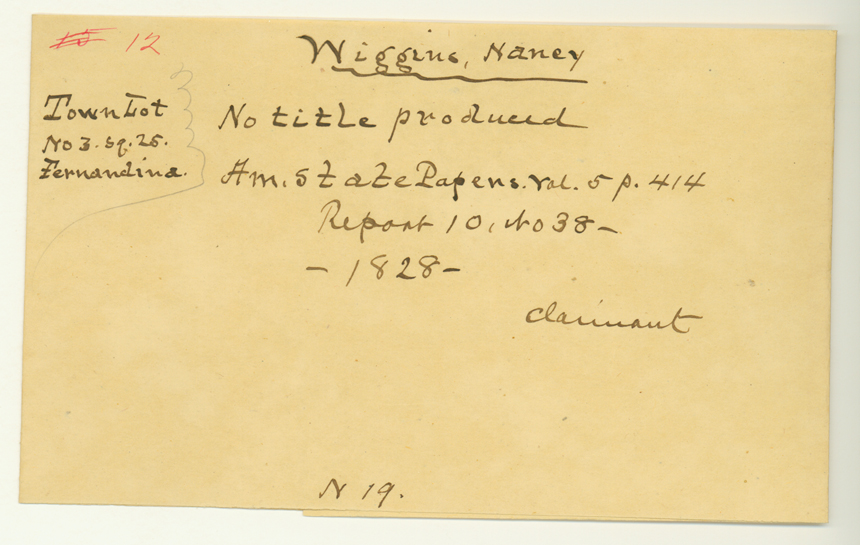 15 12
Wiggins, Nancy
Town Lot
No 3. Sq. 25.
Fernandina.
No title produced
Am. State Papers. Vol. 5 p. 414
Report 10, No 38 –
– 1828 –
Claimant
N 19.